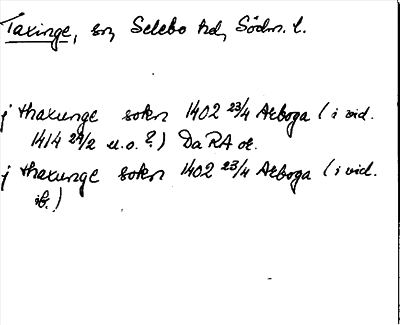 Taxinge, sn, Selebo hd, Södm. l.
j thaxunge sokn 1402 23/4 Arboga (i vid.
1414 24/2 u.o.?) Da RA or.
j thaxunge sokn 1402 23/4 Arboga (i vid.
ib.)